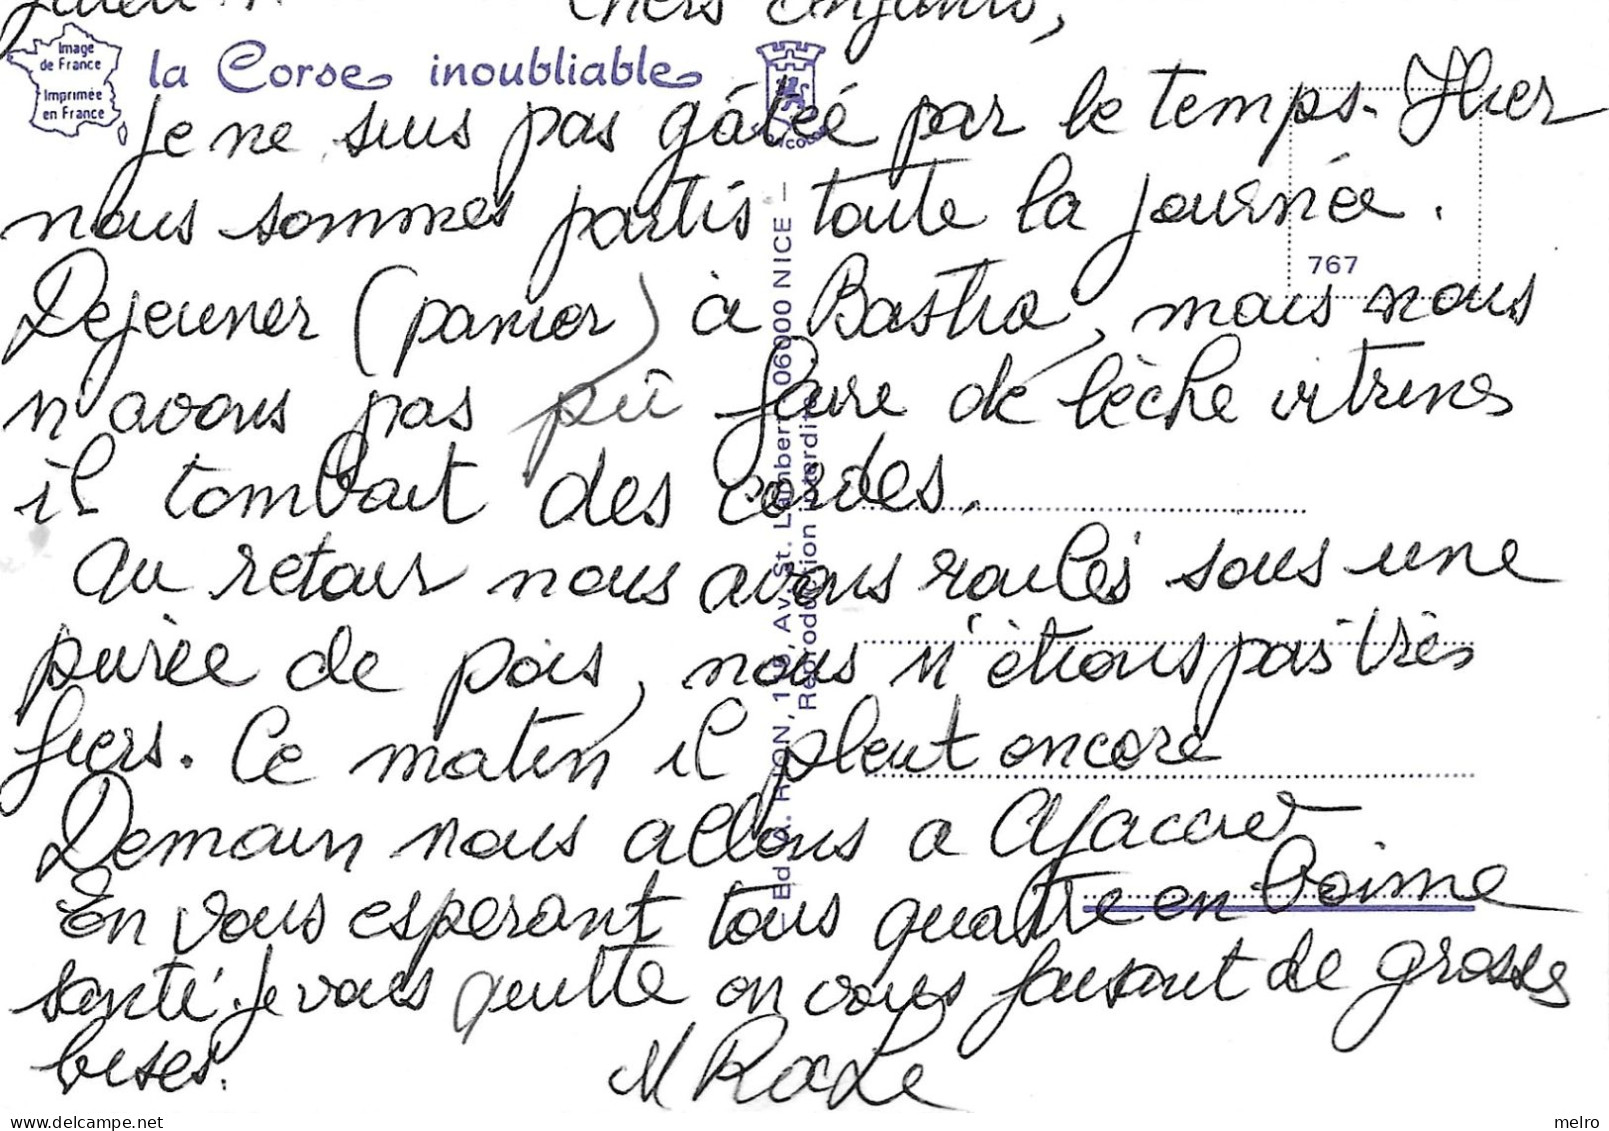 Chers Enfants,
Image
de France
Imprimée
en France
la Corse inoubliable
Je ne suis pas gâtée par le temps. Hier
nous sommes partis toute la journée.
Dejeuner (panier) à Bastia, mais nous
n'avons pas pû faire de lèche vitrines
il tombait des cordes.
Au retour nous avons roulés sous une
purée de pois, nous n'étions pas très
fiers. Ce matin il pleut encore
Demain nous allons a Ajaccio
En vous esperant tous quatre en bonne
santé. Je vous quitte en vous faisant de grosses
bises.
767
Ed. A. RYON, 119, Av. St. Lambert 06000 NICE -
Reproduction interdite
melro